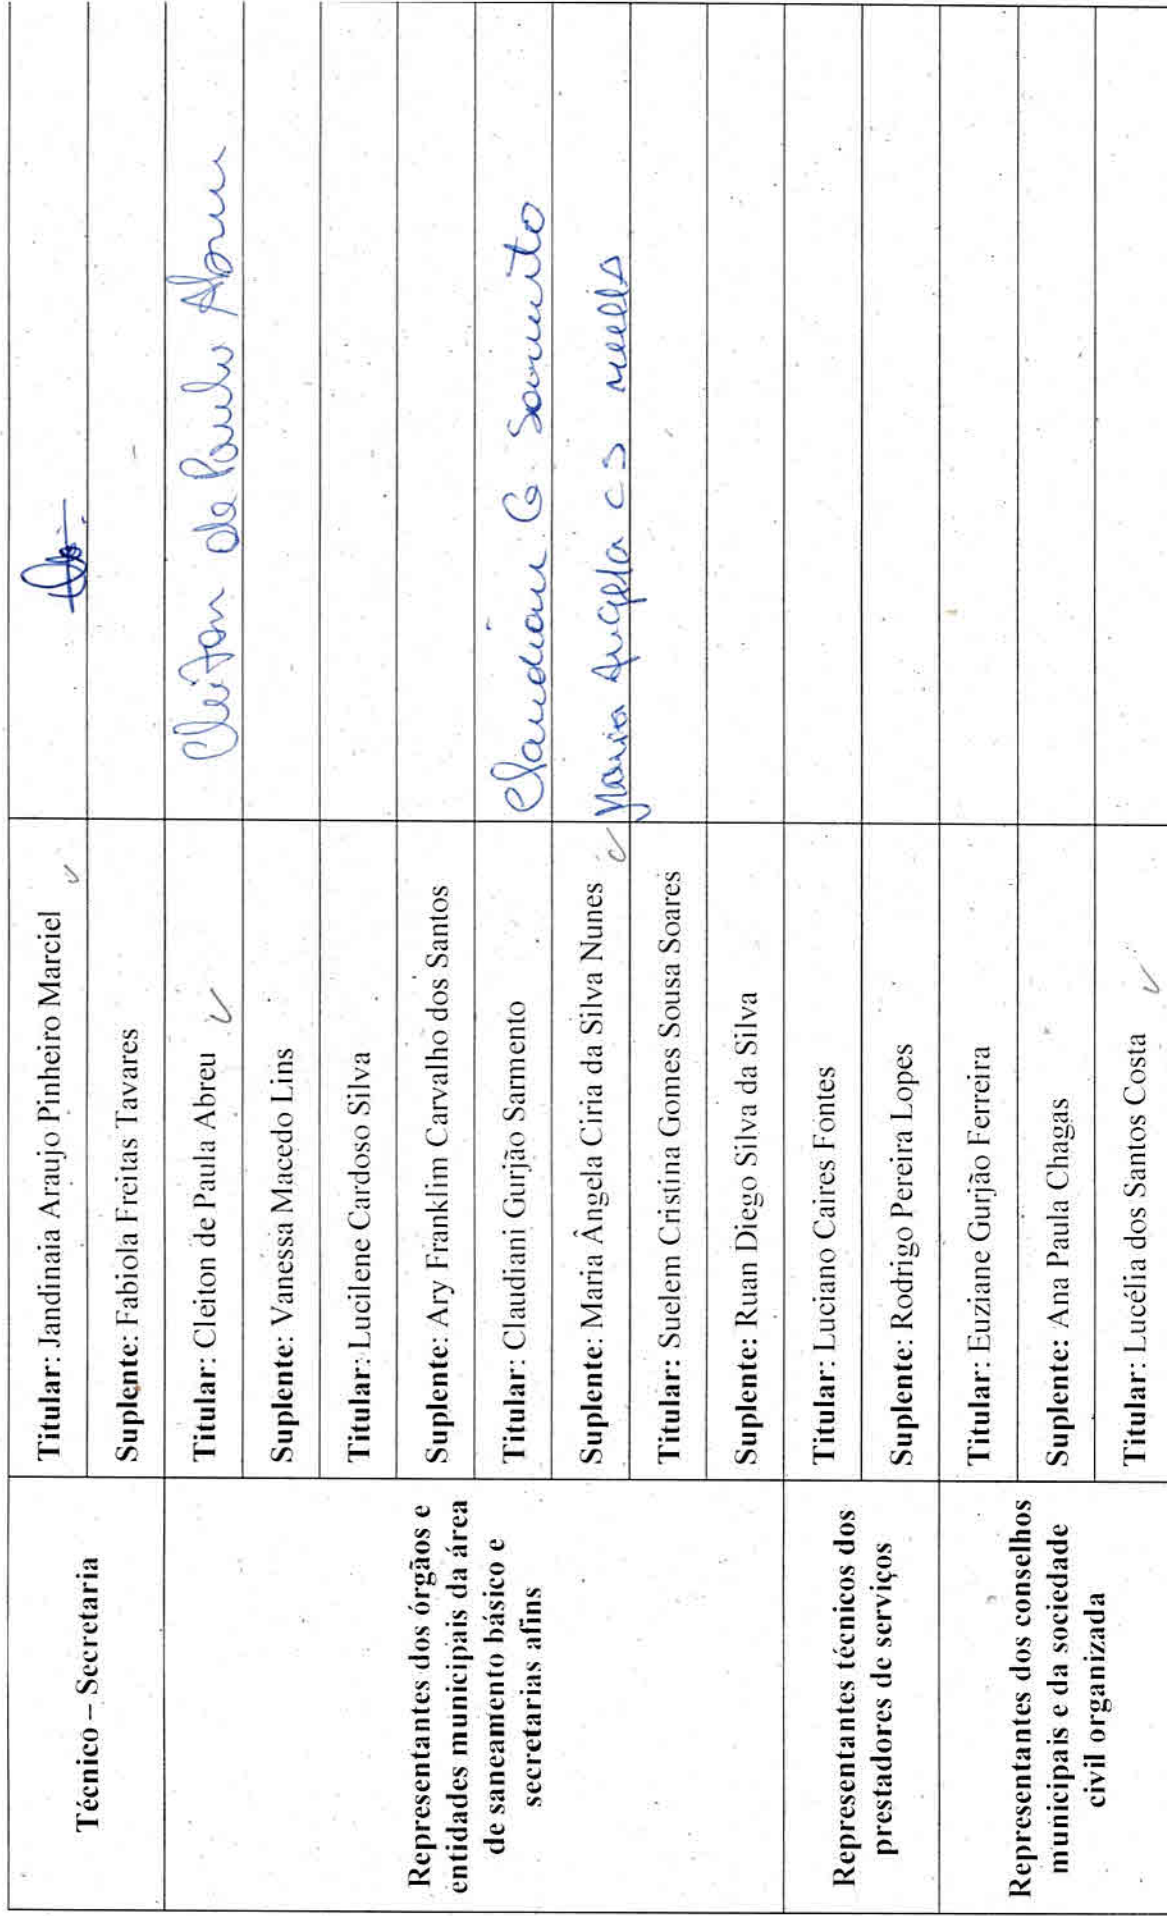 Técnico – Secretaria
Titular: Jandinaia Araujo Pinheiro Marciel
Suplente: Fabiola Freitas Tavares
Representantes dos órgãos e
entidades municipais da área
de saneamento básico e
secretarias afins
Titular: Cleiton de Paula Abreu
Cleiton de Paula Abreu
Suplente: Vanessa Macedo Lins
Titular: Lucilene Cardoso Silva
Suplente: Ary Franklim Carvalho dos Santos
Titular: Claudiani Gurjão Sarmento
Claudiani G. Sarmento
Suplente: Maria Ângela Ciria da Silva Nunes
Maria Angela C S
Titular: Suelem Cristina Gomes Sousa Soares
Suplente: Ruan Diego Silva da Silva
Representantes técnicos dos
prestadores de serviços
Titular: Luciano Caires Fontes
Suplente: Rodrigo Pereira Lopes
Representantes dos conselhos
municipais e da sociedade
civil organizada
Titular: Euziane Gurjão Ferreira
Suplente: Ana Paula Chagas
Titular: Lucélia dos Santos Costa